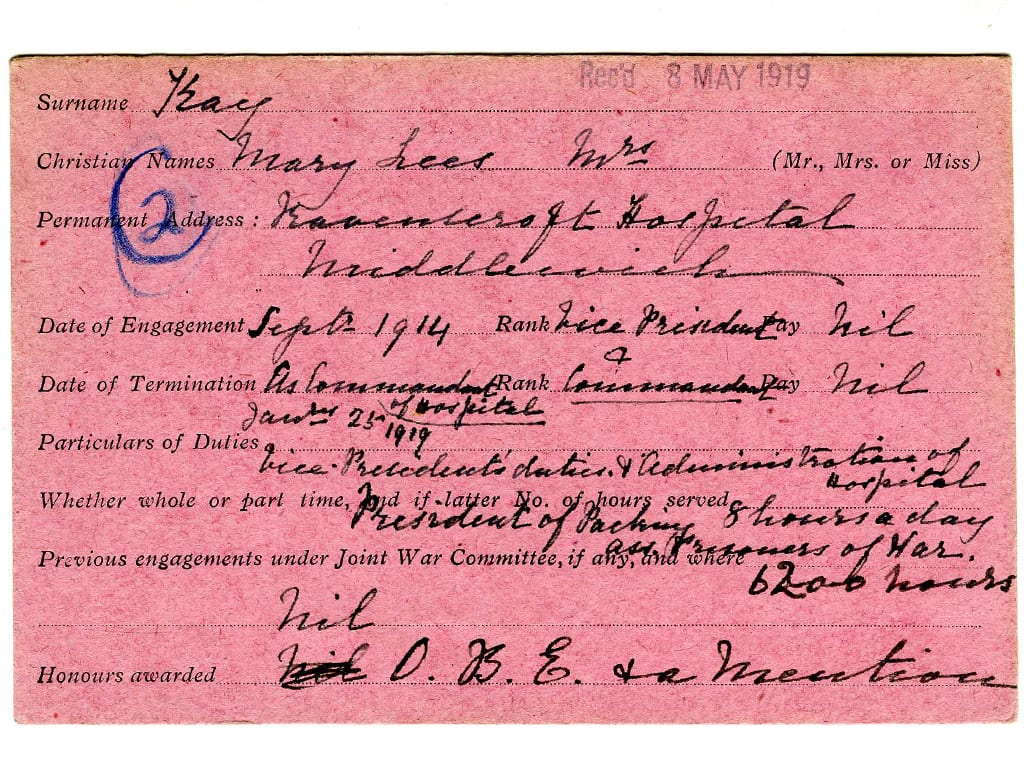 Rec'd 8 MAY 1919
Surname Kay
Christian Names Mary Lees Mrs (Mr., Mrs. or Miss)
2
Permanent Address : Ravenscroft Hospital
Middlewich
Date of Engagement Sept 1914 Rank Vice President Pay Nil
&
Date of Termination As Commandant Rank Commandant Pay Nil
of Hospital
25
1919
Particulars of Duties
Vice-President's duties & Administration of
Hospital
Whether whole or part time, and if latter No. of hours served
President of Packing 8 hours a day
Prisoners of War.
Previous engagements under Joint War Committee, if any, and where
6200 hours
Nil
Honours awarded Nil O. B. E. & a Mention